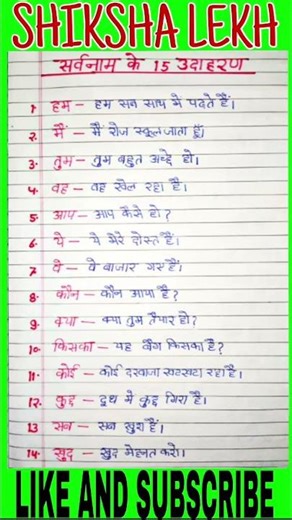 SHIKSHA LEKH
सर्वनाम के 15 उदाहरण
1. हम – हम सब साथ में पढ़ते हैं।
2. मैं – मैं रोज स्कूल जाता हूँ।
3. तुम – तुम बहुत अच्छे हो।
4. वह – वह खेल रहा है।
5. आप – आप कैसे हो?
6. ये – ये मेरे दोस्त हैं।
7. वे – वे बाजार गए हैं।
8. कौन – कौन आया है?
9. क्या – क्या तुम तैयार हो?
10. किसका – यह बैग किसका है?
11. कोई – कोई दरवाजा खटखटा रहा है।
12. कुछ – दूध में कुछ गिरा है।
13 सब – सब खुश हैं।
14. खुद – खुद मेहनत करो।
LIKE AND SUBSCRIBE